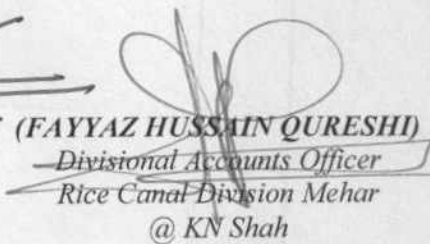 (FAYYAZ HUSSAIN QURESHI)
Divisional Accounts Officer
Rice Canal Division Mehar
@ KN Shah